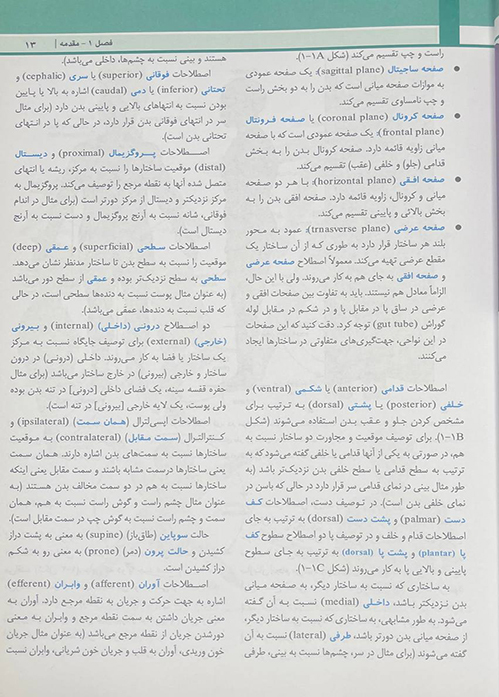 فصل ۱ - مقدمه / ۱۳
راست و چپ تقسیم می‌کند (شکل ۱A-۱).
• صفحه ساجیتال (sagittal plane): یک صفحه عمودی
به موازات صفحه میانی است که بدن را به دو بخش راست
و چپ نامساوی تقسیم می‌کند.
• صفحه کرونال (coronal plane) یا صفحه فرونتال
(frontal plane): یک صفحه عمودی است که با صفحه
میانی زاویه قائمه دارد. صفحه کرونال بدن را به بخش
قدامی (جلو) و خلفی (عقب) تقسیم می‌کند.
• صفحه افقی (horizontal plane): با هر دو صفحه
میانی و کرونال، زاویه قائمه دارد. صفحه افقی بدن را به
بخش بالائی و پایینی تقسیم می‌کند.
• صفحه عرضی (trnasverse plane): عمود به محور
بلند هر ساختار قرار دارد به طوری که از آن ساختار یک
مقطع عرضی تهیه می‌کند. معمولاً اصطلاح صفحه عرضی
و صفحه افقی به جای هم به کار می‌روند. ولی با این حال،
الزاماً معادل هم نیستند. باید به تفاوت بین صفحات افقی و
عرضی در ساق پا در مقابل پا و در شکم در مقابل لوله
گوراش (gut tube) توجه کرد. دقت کنید که این صفحات
در این نواحی، جهت‌گیری‌های متفاوتی در ساختارها ایجاد
می‌کنند.
اصطلاحات قدامی (anterior) یا شکمی (ventral) و
خلفی (posterior) یا پشتی (dorsal) به ترتیب برای
مشخص کردن جلو و عقب بدن استفاده می‌شوند (شکل
۱B-۱). برای توصیف موقعیت و مجاورت دو ساختار نسبت به
هم، در صورتی به یکی از آنها قدامی یا خلفی گفته می‌شود که به
ترتیب به سطح قدامی یا سطح خلفی بدن نزدیک‌تر باشد (به
طور مثال بینی در نمای قدامی سر قرار دارد در حالی که باسن در
نمای خلفی بدن است). در توصیف دست، اصطلاحات کف
دست (palmar) و پشت دست (dorsal) به ترتیب به جای
اصطلاحات قدام و خلف و در توصیف پا دو اصطلاح سطوح کف
پا (plantar) و پشت پا (dorsal) به ترتیب به جای سطوح
پایینی و بالایی پا به کار می‌روند (شکل ۱C-۱).
به ساختاری که نسبت به ساختار دیگر، به صفحه میانی
بدن نزدیکتر باشد، داخلی (medial) نسبت به آن گفته
می‌شود. به طور مشابهی، به ساختاری که نسبت به ساختار دیگر،
از صفحه میانی بدن دورتر باشد، طرفی (lateral) نسبت به آن
گفته می‌شوند (برای مثال در سر، چشم‌ها نسبت به بینی، طرفی
هستند و بینی نسبت به چشم‌ها، داخلی می‌باشد).
اصطلاحات فوقانی (superior) یا سری (cephalic) و
تحتانی (inferior) یا دمی (caudal) اشاره به بالا یا پایین
بودن نسبت به انتهاهای بالایی و پایینی بدن دارد (برای مثال
سر در انتهای فوقانی بدن قرار دارد، در حالی که پا در انتهای
تحتانی بدن است).
اصطلاحات پروگزیمال (proximal) و دیستال
(distal) موقعیت ساختارها را نسبت به مرکز، ریشه یا انتهای
متصل شده آنها به نقطه مرجع را توصیف می‌کند. پروگزیمال به
مرکز نزدیکتر و دیستال از مرکز دورتر است (برای مثال در اندام
فوقانی، شانه نسبت به آرنج پروگزیمال و دست نسبت به آرنج
دیستال است).
اصطلاحات سطحی (superficial) و عمقی (deep)
موقعیت را نسبت به سطح بدن تا ساختار مدنظر نشان می‌دهد.
سطحی به سطح نزدیک‌تر بوده و عمقی از سطح دور می‌باشد
(به عنوان مثال پوست نسبت به دنده‌ها سطحی است، در حالی
که قلب نسبت به دنده‌ها، عمقی می‌باشد).
دو اصطلاح درونی (داخلی) (internal) و بیرونی
(خارجی) (external) برای توصیف جایگاه نسبت به مرکز
یک ساختار یا فضا به کار می‌روند. داخلی (درونی) در درون
ساختار و خارجی (بیرونی) در خارج ساختار می‌باشد (برای مثال
حفره قفسه سینه، یک فضای داخلی [درونی] در تنه بدن بوده
ولی پوست، یک لایه خارجی [بیرونی] در تنه است).
اصطلاحات اپسی‌لترال (همان سمت) (ipsilateral) و
کنترالترال (سمت مقابل) (contralateral) به موقعیت
ساختارها نسبت به سمت‌های بدن اشاره دارند. همان سمت
یعنی ساختارها درسمت مشابه باشند و سمت مقابل یعنی اینکه
ساختارها نسبت به هم در دو سمت مخالف بدن هستند (به
عنوان مثال چشم راست و گوش راست نسبت به هم، همان
سمت و چشم راست نسبت به گوش چپ در سمت مقابل است).
حالت سوپاین (طاق‌باز) (supine) به معنی به پشت دراز
کشیدن و حالت پرون (دمر) (prone) به معنی رو به شکم
دراز کشیدن است.
اصطلاحات آوران (afferent) و وابران (efferent)
اشاره به جهت حرکت و جریان به نقطه مرجع دارد. آوران به
معنی جریان داشتن به سمت نقطه مرجع و وابران به معنی
دورشدن جریان از نقطه مرجع می‌باشد (به عنوان مثال جریان
خون وریدی، آوران به قلب و جریان خون شریانی، وابران نسبت